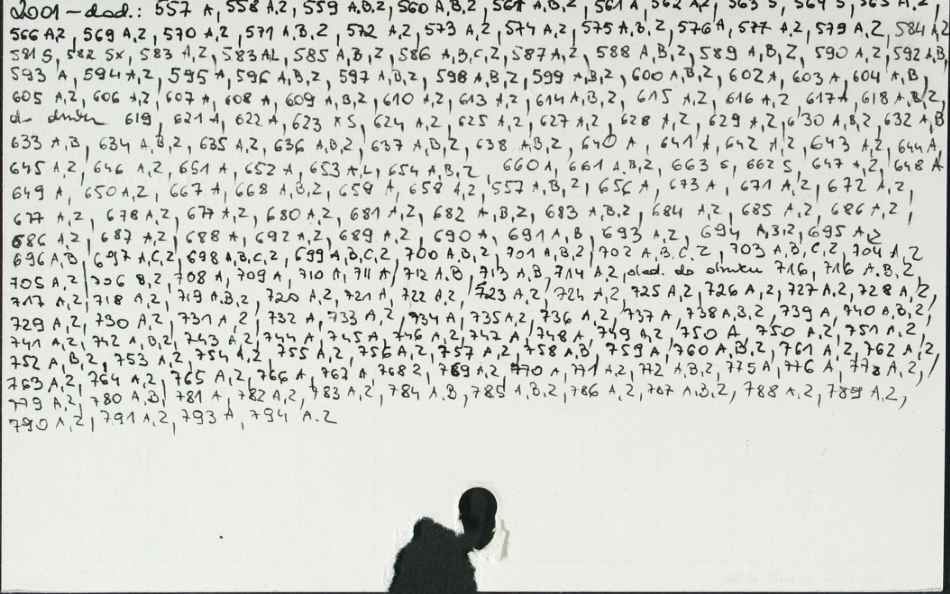 2001 - dod.: 557 A, 558 A.2, 559 A.B.2, 560 A,B,2, 561 A,B,2, 561 A, 562 A,2, 563 S, 564 S, 565 A,2,
566 A,2, 569 A,2, 570 A,2, 571 A,B,2, 572 A,2, 573 A,2, 574 A,2, 575 A,B,2, 576 A, 577 A,2, 579 A,2, 584 A,2
581 S, 582 SX, 583 A,2, 583 AL, 585 A,B,2, 586 A,B,C,2, 587 A,2, 588 A,B,2, 589 A,B,2, 590 A,2, 592 A,B,
593 A, 594 A,2, 595 A, 596 A,B,2, 597 A,B,2, 598 A,B,2, 599 A,B,2, 600 A,B,2, 602 A, 603 A, 604 A,B,
605 A,2, 606 A,2, 607 A, 608 A, 609 A,B,2, 610 A,2, 613 A,2, 614 A,B,2, 615 A,2, 616 A,2, 617 A, 618 A,B,2,
do druku 619, 621 A, 622 A, 623 XS, 624 A,2, 625 A,2, 627 A,2, 628 A,2, 629 A,2, 630 A,B,2, 632 A,B
633 A,B, 634 A,B,2, 635 A,2, 636 A,B,2, 637 A,B,2, 638 A,B,2, 640 A, 641 A, 642 A,2, 643 A,2, 644 A,
645 A,2, 646 A,2, 651 A, 652 A, 653 A,L, 654 A,B,2, 660 A, 661 A.B,2, 663 S, 662 S, 647 A,2, 648 A
649 A, 650 A,2, 667 A, 668 A,B,2, 659 A, 658 A,2, 557 A,B,2, 656 A, 673 A, 671 A,2, 672 A,2,
677 A,2, 678 A,2, 677 A,2, 680 A,2, 681 A,2, 682 A,B,2, 683 A,B,2, 684 A,2, 685 A,2, 686 A,2,
686 A,2, 687 A,2, 688 A, 692 A,2, 689 A,2, 690 A, 691 A,B, 693 A,2, 694 A,B,2, 695 A,2
696 A,B, 697 A,C,2, 698 A,B,C,2, 699 A,B,C,2, 700 A,B,2, 701 A,B,2, 702 A,B,C.2, 703 A,B,C,2, 704 A,2
705 A,2, 706 B,2, 708 A, 709 A, 710 A, 711 A, 712 A.B, 713 A,B, 714 A,2, dod. do druku 716, 716 A.B,2,
717 A,2, 718 A,2, 719 A.B,2, 720 A,2, 721 A, 722 A,2, 723 A,2, 724 A,2, 725 A,2, 726 A,2, 727 A,2, 728 A,2,
729 A,2, 730 A,2, 731 A,2, 732 A, 733 A,2, 734 A, 735 A,2, 736 A,2, 737 A, 738 A,B,2, 739 A, 740 A,B,2,
741 A,2, 742 A,B,2, 743 A,2, 744 A, 745 A, 746 A,2, 747 A, 748 A, 749 A,2, 750 A, 750 A,2, 751 A,2,
752 A,B,2, 753 A,2, 754 A,2, 755 A,2, 756 A,2, 757 A,2, 758 A,B, 759 A, 760 A,B,2, 761 A,2, 762 A,2,
763 A,2, 764 A,2, 765 A,2, 766 A, 767 A, 768 2, 769 A,2, 770 A, 771 A,2, 772 A,B,2, 775 A, 776 A, 778 A,2,
779 A,2, 780 A,B, 781 A, 782 A,2, 783 A,2, 784 A.B, 785 A,B,2, 786 A,2, 787 A,B,2, 788 A,2, 789 A,2,
790 A,2, 791 A,2, 793 A, 794 A.2